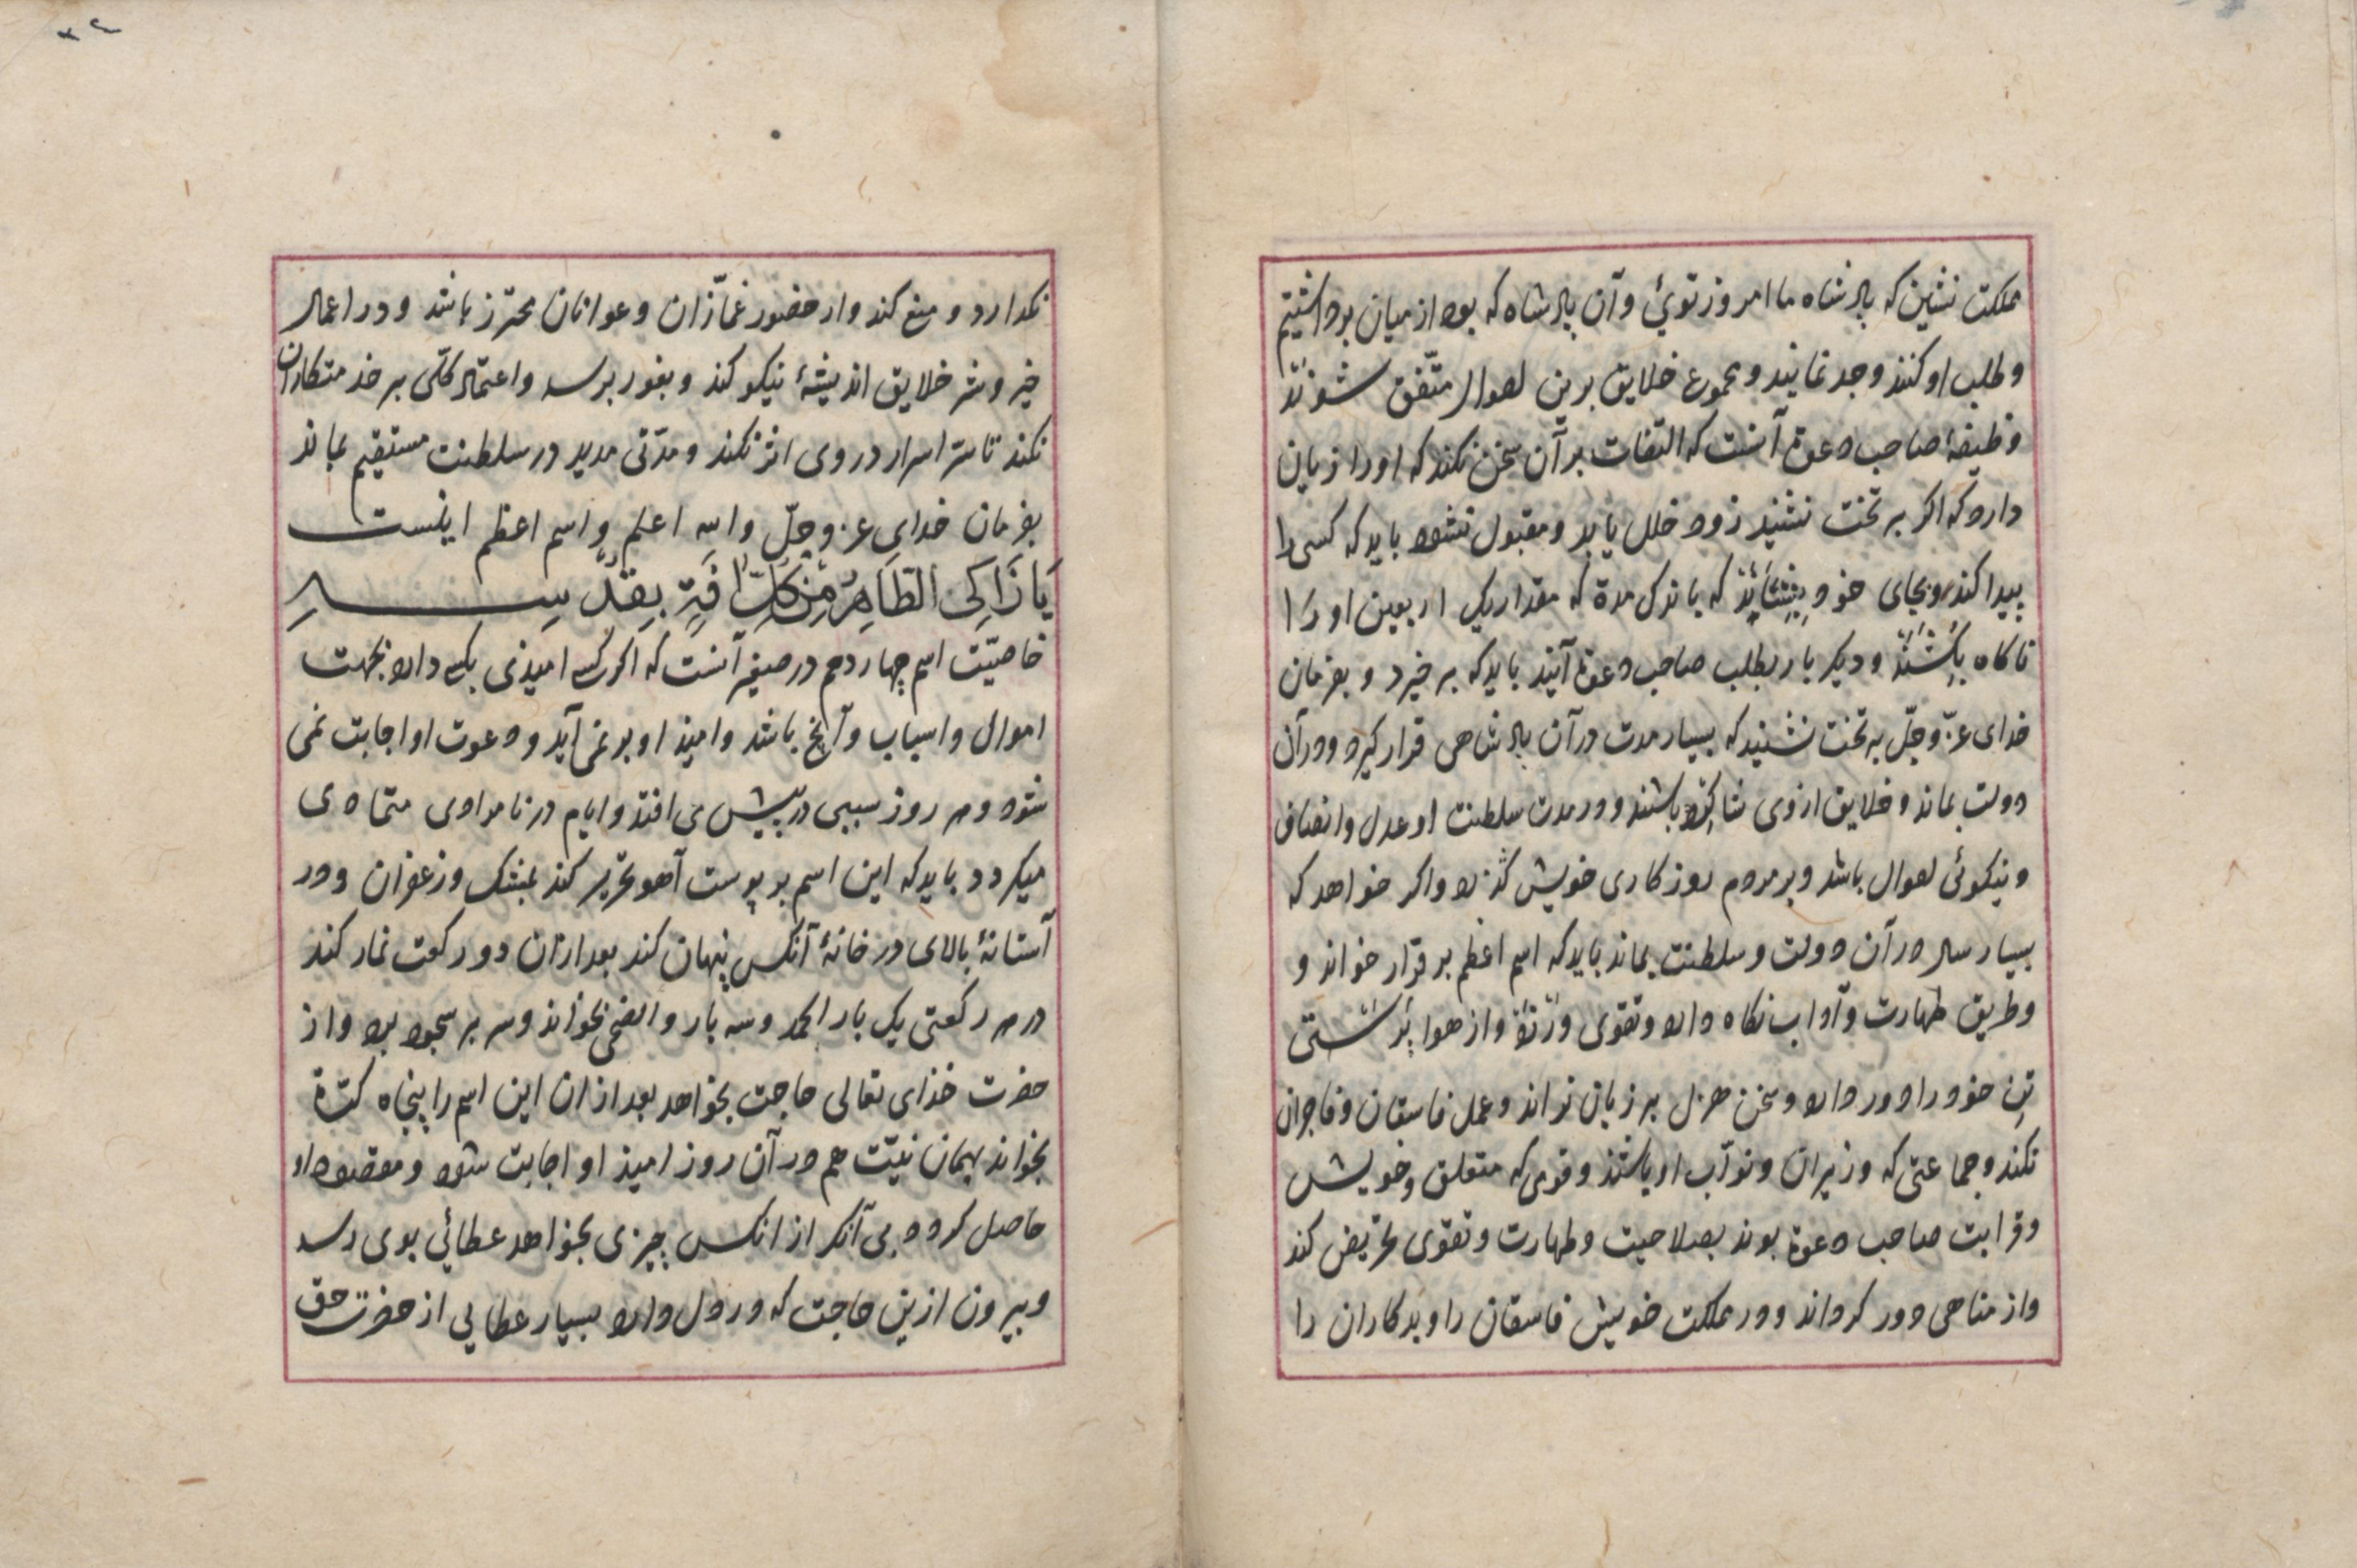 مملکت نشین که پادشاه ما امروز توئی و آن پادشاه که بود از میان برداشتیم
و طلب او کنند و جد نمایند و مجموع خلایق برین احوال متّفق شوند
وظیفهٔ صاحب دعوة آنست که التفات بر آن سخن نکند که او را زیان
دارد که اگر بر تخت نشیند زود خلل یابد و مقبول نشود باید که کسی را
پیدا کند و بجای خود بنشاند که باندک مدة که مقدار یک اربعین او را
ناکاه بکشند و دیکر بار بطلب صاحب دعوة آیند باید که بر خیزد و بفرمان
خدای عزّ و جلّ به تخت نشیند که بسیار مدت در آن پادشاهی قرار کیرد و در آن
دولت بماند و خلایق از وی شاکر باشند و در مدت سلطنت او عدل و انصاف
و نیکوئی احوال باشد و بر مردم روزکاری خویش کذرد و اکر خواهد که
بسیار سال در آن دولت و سلطنت بماند باید که اسم اعظم بر قرار خواند و
و طریق طهارت و آداب نکاه دارد و تقوی ورزد و از هوا پرستی
تن خود را دور دارد و سخن هزل بر زبان نراند و عمل فاسقان و فاجران
نکند و جماعتی که وزیران و نوّاب او باشند و قومی که متعلق و خویش
و قرابت صاحب دعوة بوند بصلاحیت و طهارت و تقوی تحریض کند
و از مناهی دور کرداند و در مملکت خویش فاسقان را و بدکاران را
۳۴
نکدارد و منع کند و از حضور غمّازان و عوانان محترز باشد و در اعمال
خیر و شر خلایق اندیشهٔ نیکو کند و بغور برسد و اعتماد کلّی بر خدمتکاران
نکند تا سرّ اسرار در وی اثر نکند و مدّتی مدید در سلطنت مستقیم بماند
بفرمان خدای عز و جلّ و الله اعلم و اسم اعظم اینست
یَا زَاکِی الطَّاهِرُ مِنْ کُلِّ آفَةٍ بِقُدْسِهِ
خاصیّت اسم چهاردهم در صغیر آنست که اکر کسی امیذی بکسی دارد بجهت
اموال و اسباب و آنچ باشد و امیذ او بر نمی آید و دعوت او اجابت نمی
شود و هر روز سببی در پیش می افتد و ایام در نامرادی متمادی
میکردد باید که این اسم بر پوست آهو تحریر کند بمشک و زعفران و در
آستانهٔ بالای در خانهٔ آنکس پنهان کند بعد از آن دو رکعت نماز کند
در هر رکعتی یک بار الحمد و سه بار و الضحی بخواند و سر بر سجود برد و از
حضرت خذای تعالی حاجت بخواهد بعد از ان این اسم را پنجاه کرّة
بخواند بهمان نیّت هم در آن روز امیذ او اجابت شود و مقصود او
حاصل کردد بی آنکه از انکس چیزی بخواهد عطائی بوی رسد
و بیرون ازین حاجت که در دل دارد بسیار عطایی از حضرت حق